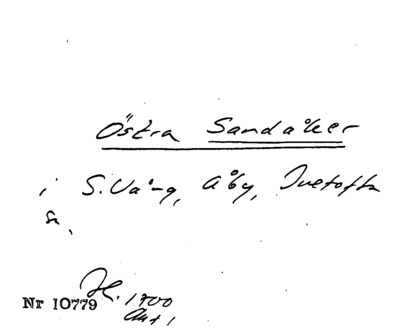 Östra Sandåker
i S. Vång, Åby, Ivetofta
sn.
H. 1700
Nr 10779 Akt 1